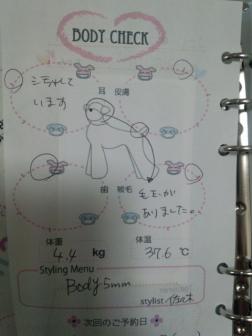 BODY CHECK
こちゃして
います
耳 皮膚
歯 被毛
毛玉が
ありました。
体重 体温
4.4 kg 37.6 ℃
Styling Menu
Body 5mm
stylist 佐々木
次回のご予約日